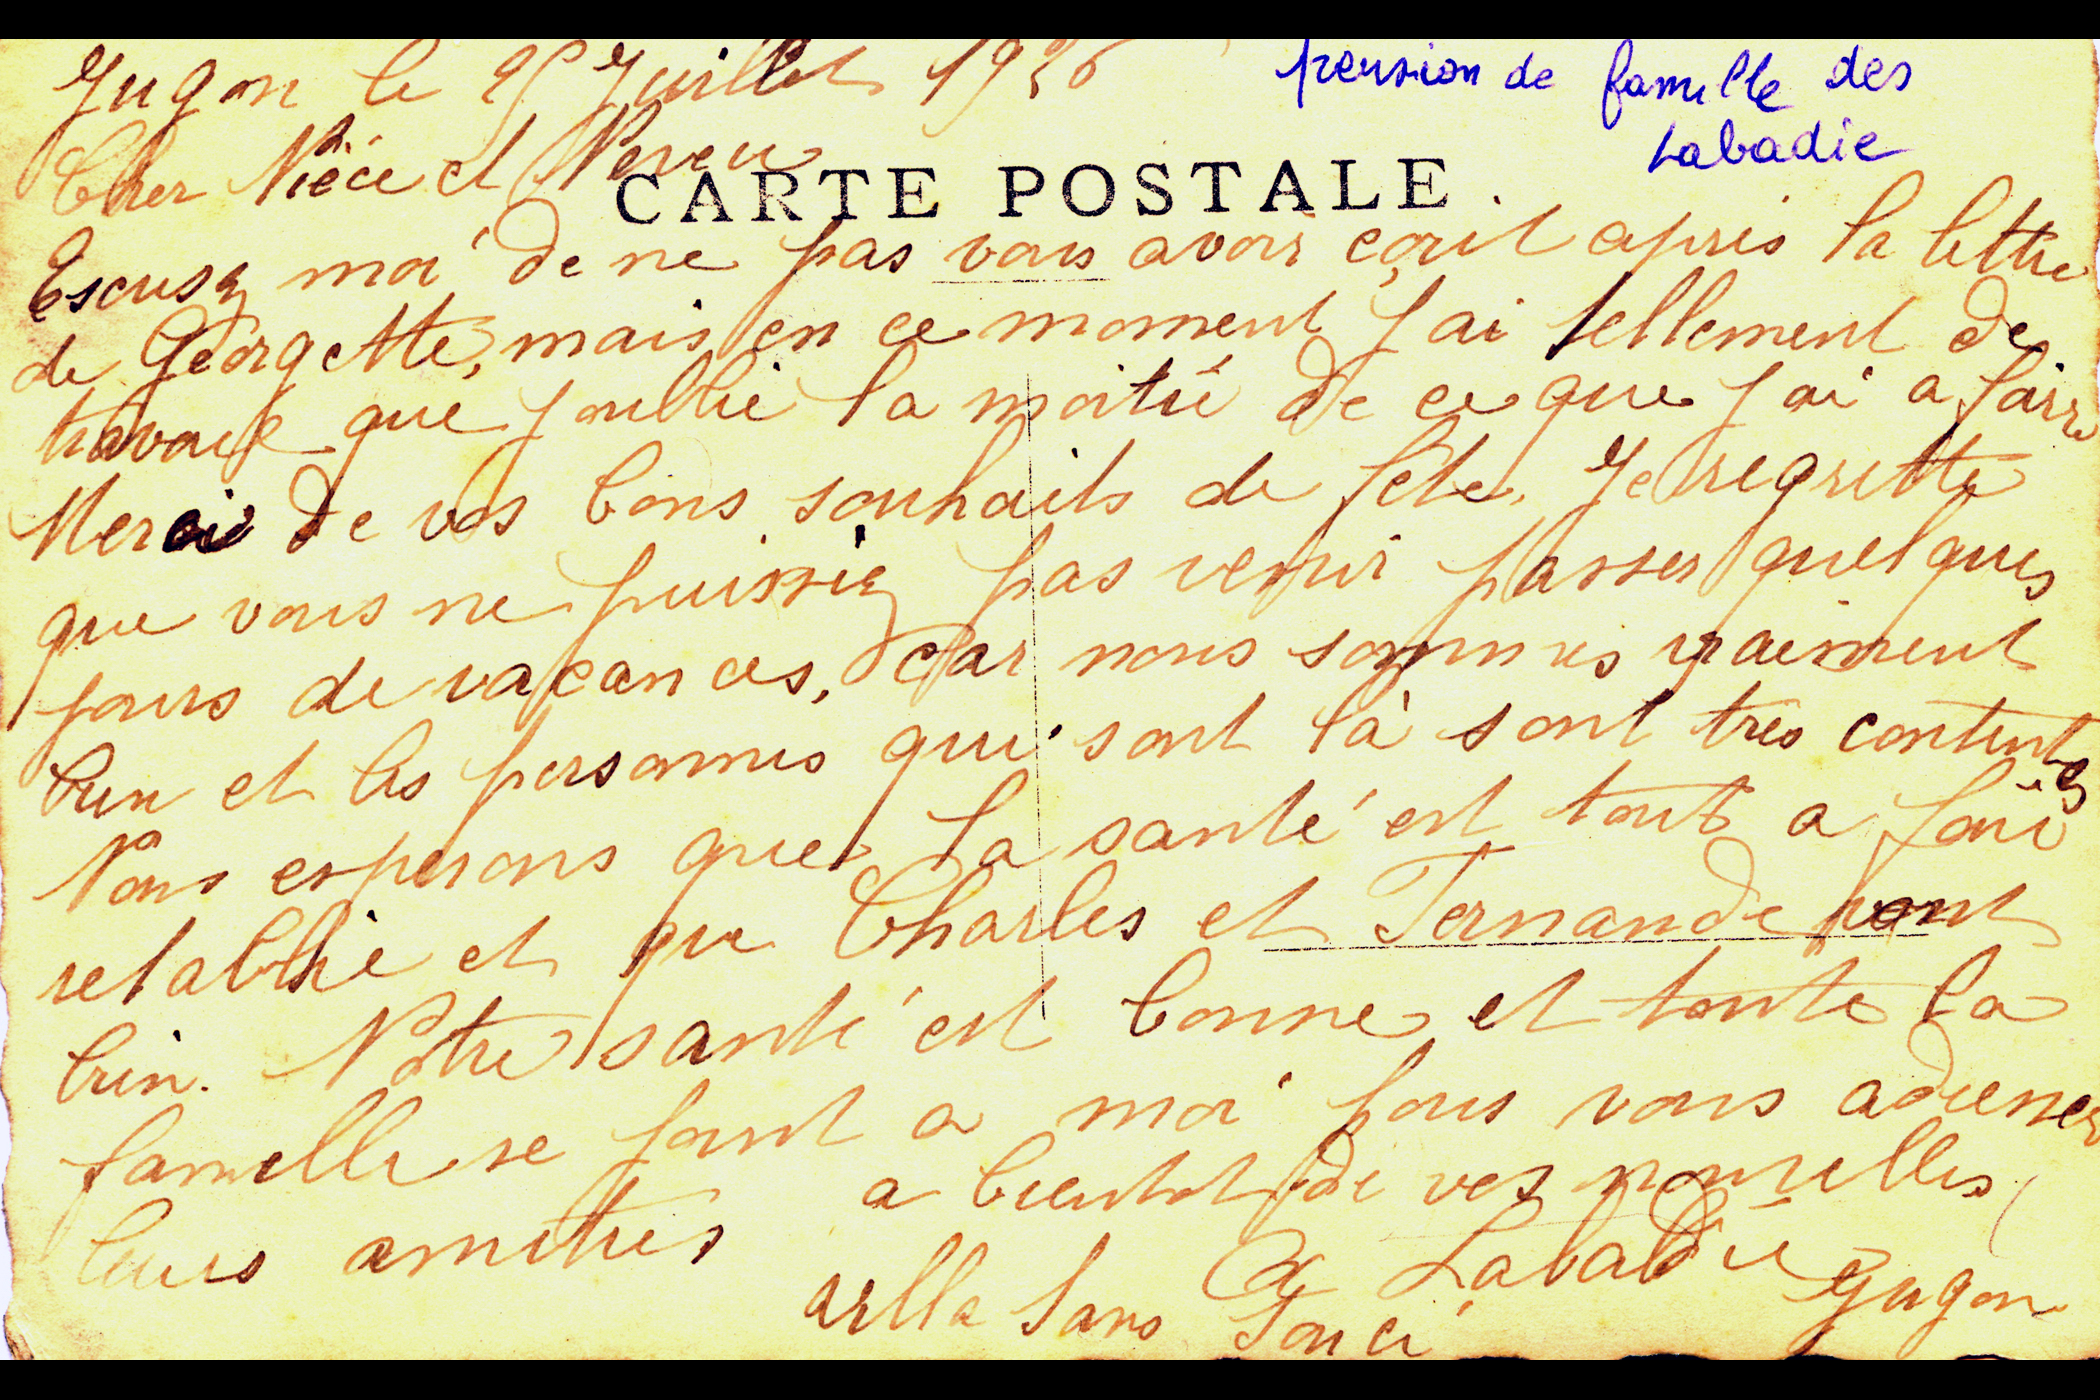 Jugon le 25 Juillet 1936
pension de famille des
Labadie
Cher Nièce et Neveu
CARTE POSTALE
Escusez moi de ne pas vous avoir ecrit apres la lettre
de Georgette, mais en ce moment j ai tellement de
travail que j oublie la moitié de ce que j ai a faire
Merci de vos bons souhaits de fête. Je regrette
que vous ne puissiez pas venir passer quelques
jours de vacances, car nous sommes vraiment
bien et les personnes qui sont là sont très contentes
Nous esperons que la santé est tout a fait
retablie et que Charles et Fernande vont
bien. Notre santé est bonne et toute la
famille se joint a moi pour vous adresser
leurs amitiés a bientot de vos nouvelles
Labadie
villa Sans Souci Jugon